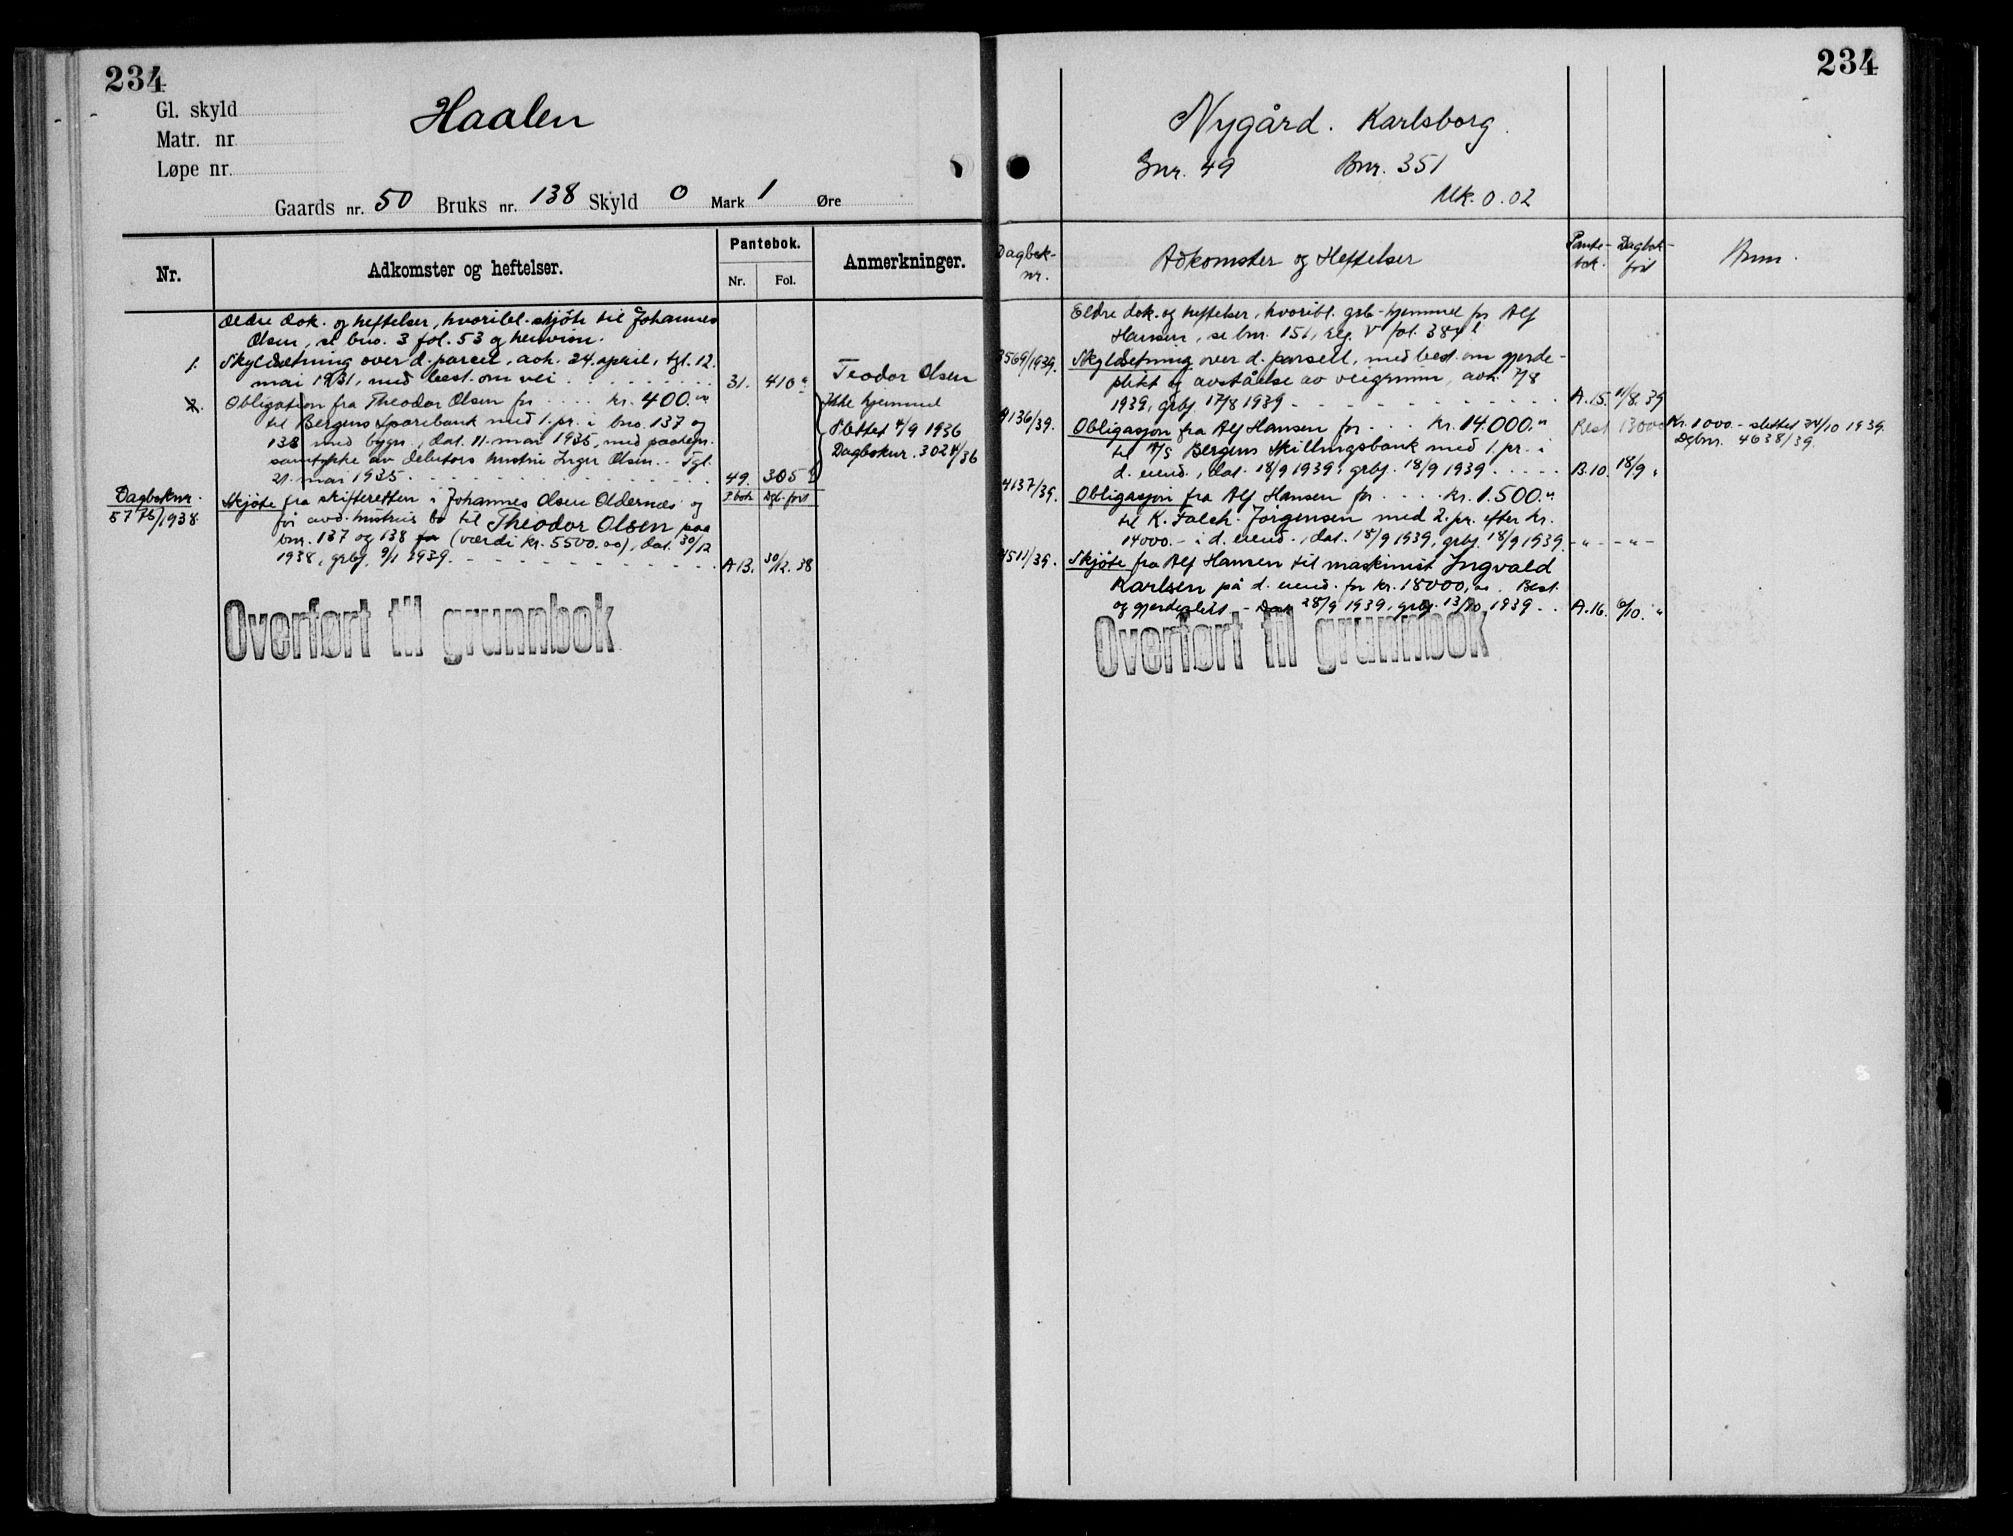 234
Gl. skyld
Matr. nr
Løpe nr.
Haalen
Gaards nr. 50 Bruks nr. 138 Skyld 0 Mark 1 Øre
Nr.
Adkomster og heftelser.
Pantebok.
Nr. Fol.
Anmerkninger.
Ældre dok. og heftelser, hvoribl. skjøte til Johannes
Olsen, se bno. 3 fol. 53 og henvisn.
1. Skylddetning over d. parcel, avh. 24 april, tgl. 12.
mai 1931, med best. om vei 31. 410 Teodor Olsen
2. Obligation fra Theodor Olsen for kr. 400.
til Bergens Sparebank med 1. pr. i bno. 137 og
138 med bygn., dat. 11. mai 1935, med paategn.
samtykke av debitors hustru Inger Olsen. Tgl.
21. mai 1935 49. 305
Ikke hjemmel
Slettet 4/9 1936
Dagboknr. 3024/36
Dagboknr.
5775/1938.
P.bok Dgb. ført
Skjøte fra skifteretten i Johannes Olsen Oldernes og
for avd. hustrus bo til Theodor Olsen paa
bnr. 137 og 138 (værdi kr. 5500.00), dat. 30/12
1938, grbf. 9/1 1939. A 13. 30/12. 38
Overført til grunnbok
234
Nygård. Karlsborg.
Gnr. 49 Bnr. 351
Mk. 0.02
Dagbok-
nr.
Adkomster og Heftelser
Pante-
bok.
Dagbok-
ført
Anm.
Eldre dok. og heftelser, hvoribl. grb-hjemmel for Alf
Hansen, se bnr. 151, reg. V fol. 384
3569/1939. Skylddetning over d. parsell, med best. om gjerde-
plikt og avståelse av veigrunn, avh. 7/8
1939, grbf. 17/8 1939 A.15. 11/8. 39
4136/39. Obligasjon fra Alf Hansen for kr. 14.000. Rest 13000
til A/S Bergens Skillingsbank med 1. pr. i
d. eiend., dat. 18/9 1939, grbf. 18/9 1939 B.10. 18/9 "
Kr. 1000.- slettet 24/10 1939.
Dgbnr. 4638/39.
4137/39. Obligasjon fra Alf Hansen for kr. 1.500.
til K. Falch-Jørgensen med 2. pr. efter kr.
14000.- i d. eiend., dat. 18/9 1939, grbf. 18/9 1939. - " - - " -
4511/39. Skjøte fra Alf Hansen til maskinist Ingvald
Karlsen på d. eiend. for kr. 18000,00. Best.
og gjerdeplikt. - Dat. 28/9 1939, grbf. 13/10 1939 A.16. 6/10. "
Overført til grunnbok